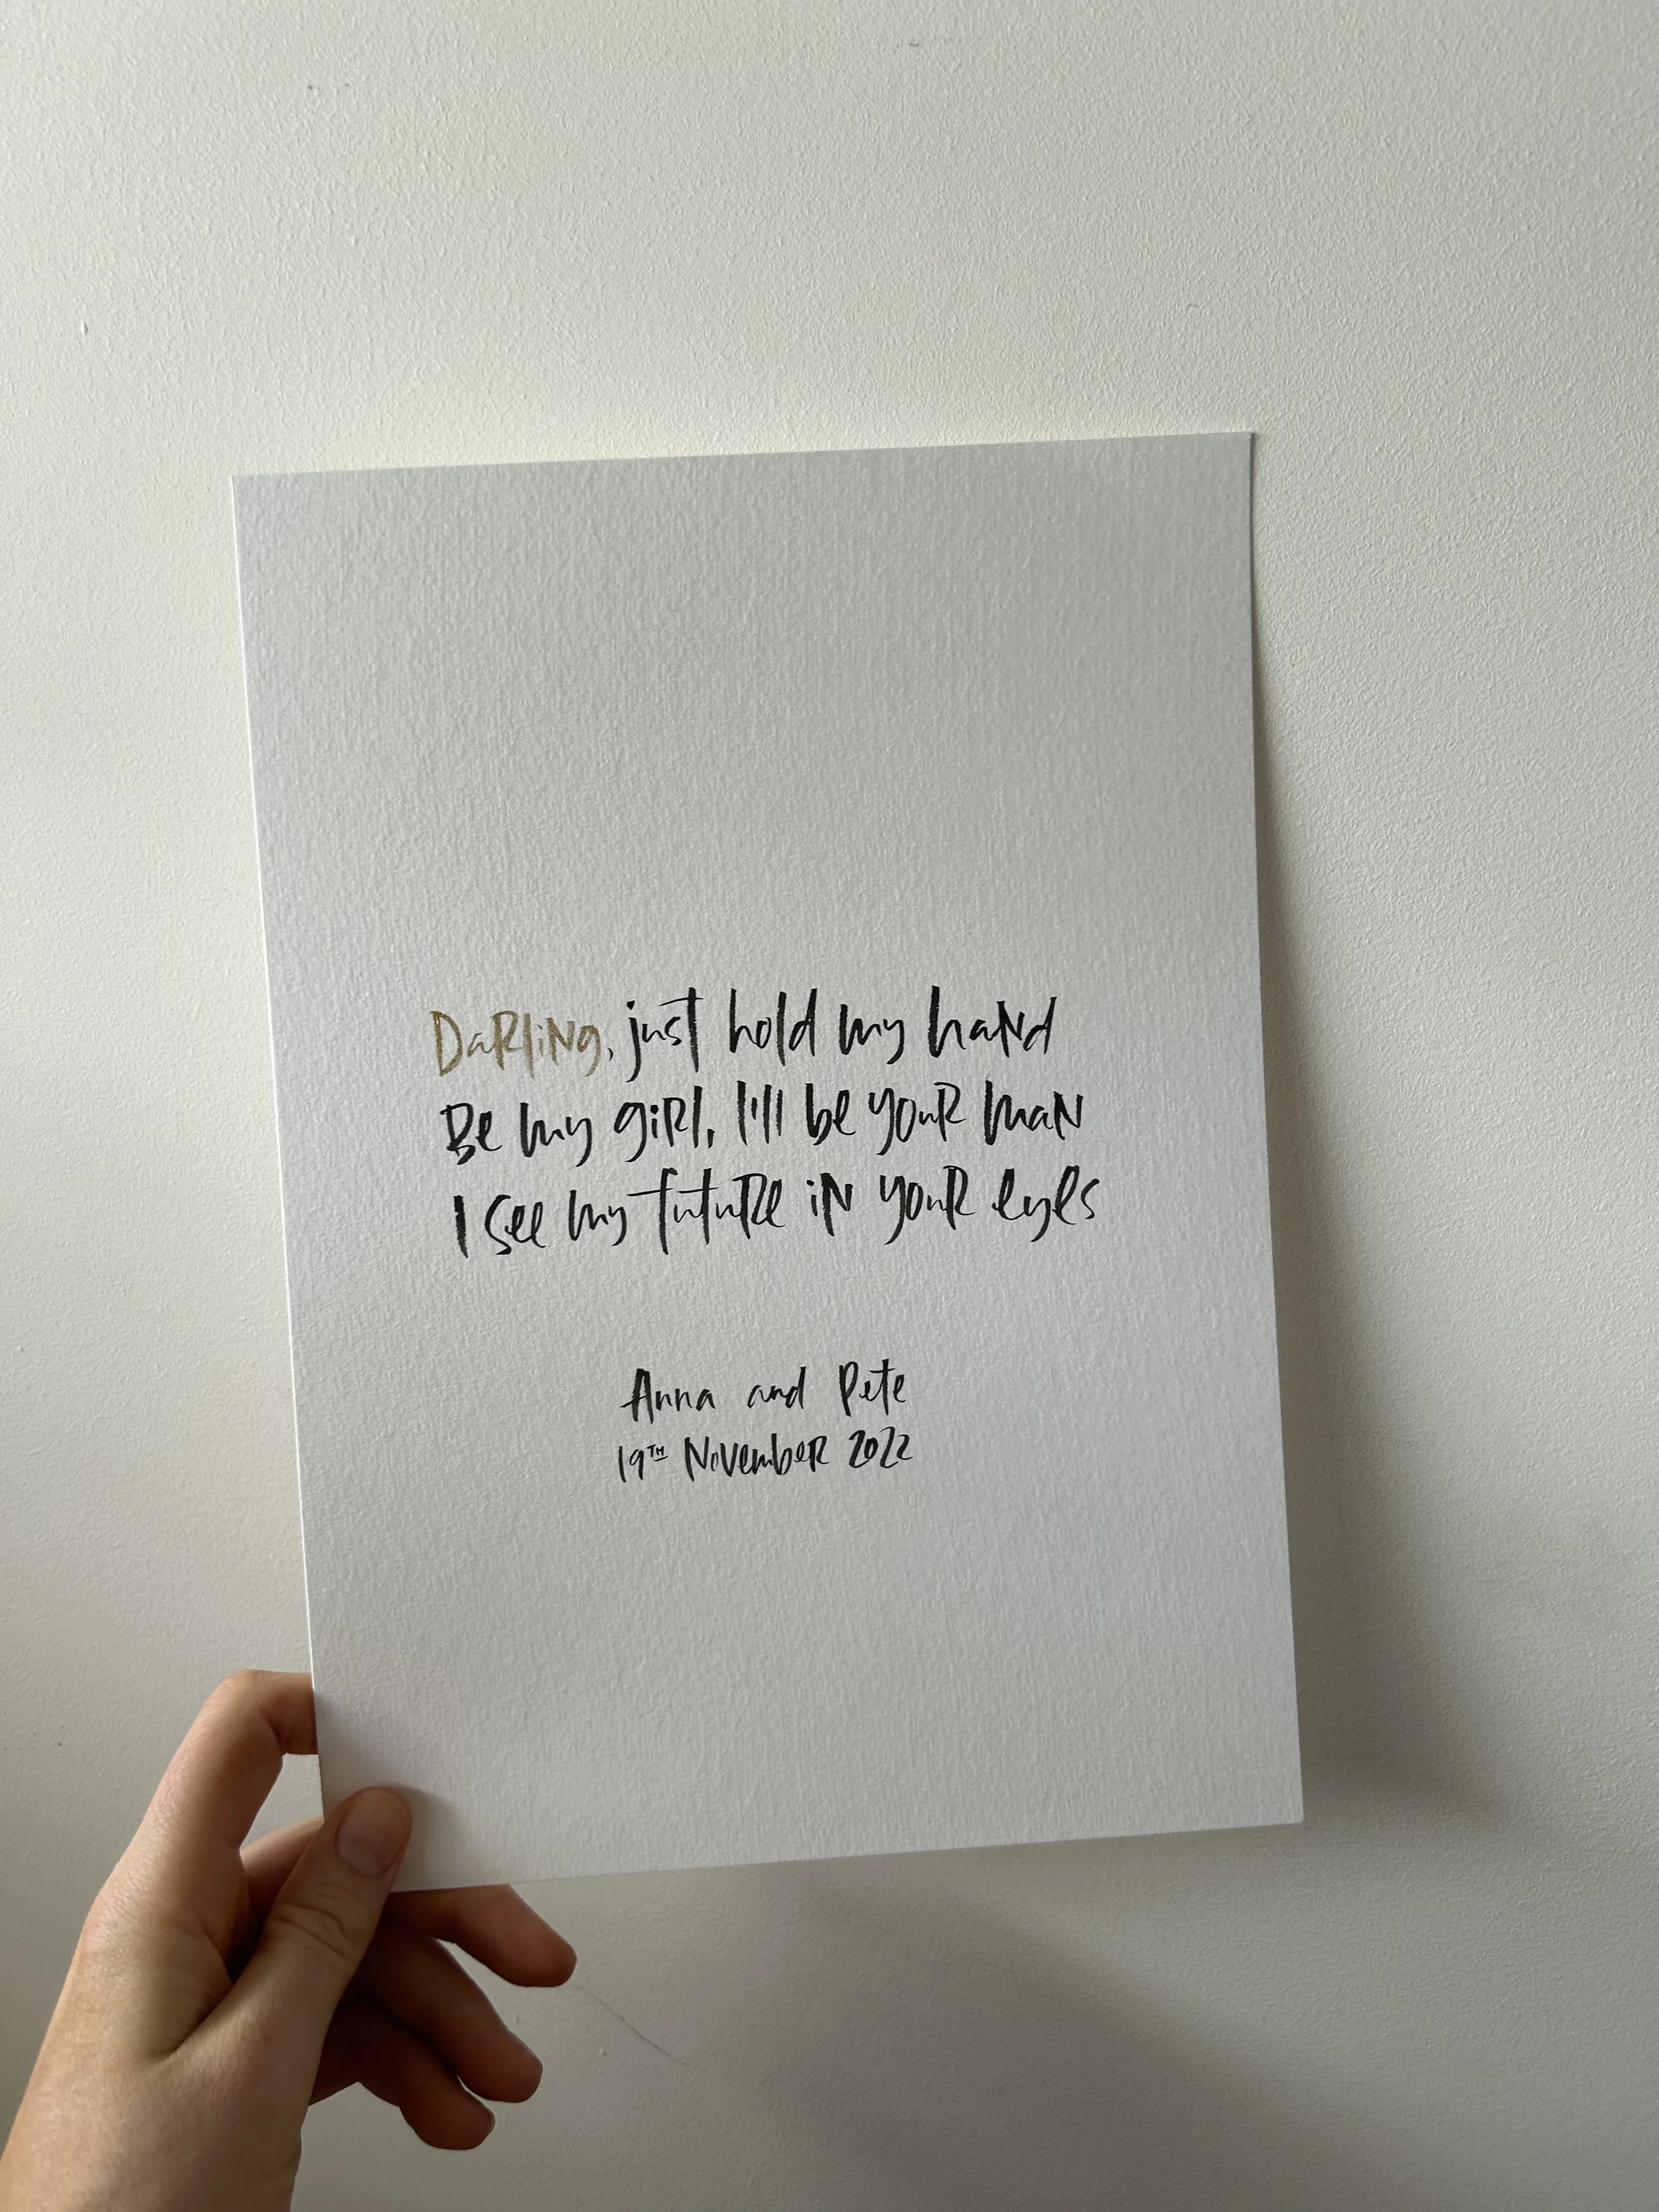 Darling, just hold my hand
Be my girl, I'll be your man
I see my future in your eyes
Anna and Pete
19TH November 2022